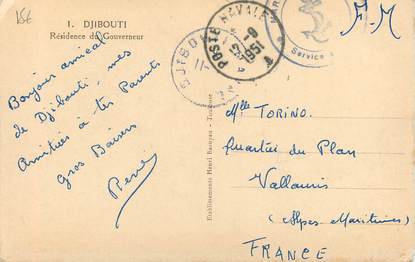 15€
1. DJIBOUTI
Résidence du Gouverneur
Bonjour amical
de Djibouti, mes
Amitiés à tes Parents
Gros Baisers
René
Etablissements Henri
POSTE NAVALE
1951
Service
F.M
Mlle TORINO.
Quartier du Plan
Vallauris
(Alpes Maritimes)
FRANCE